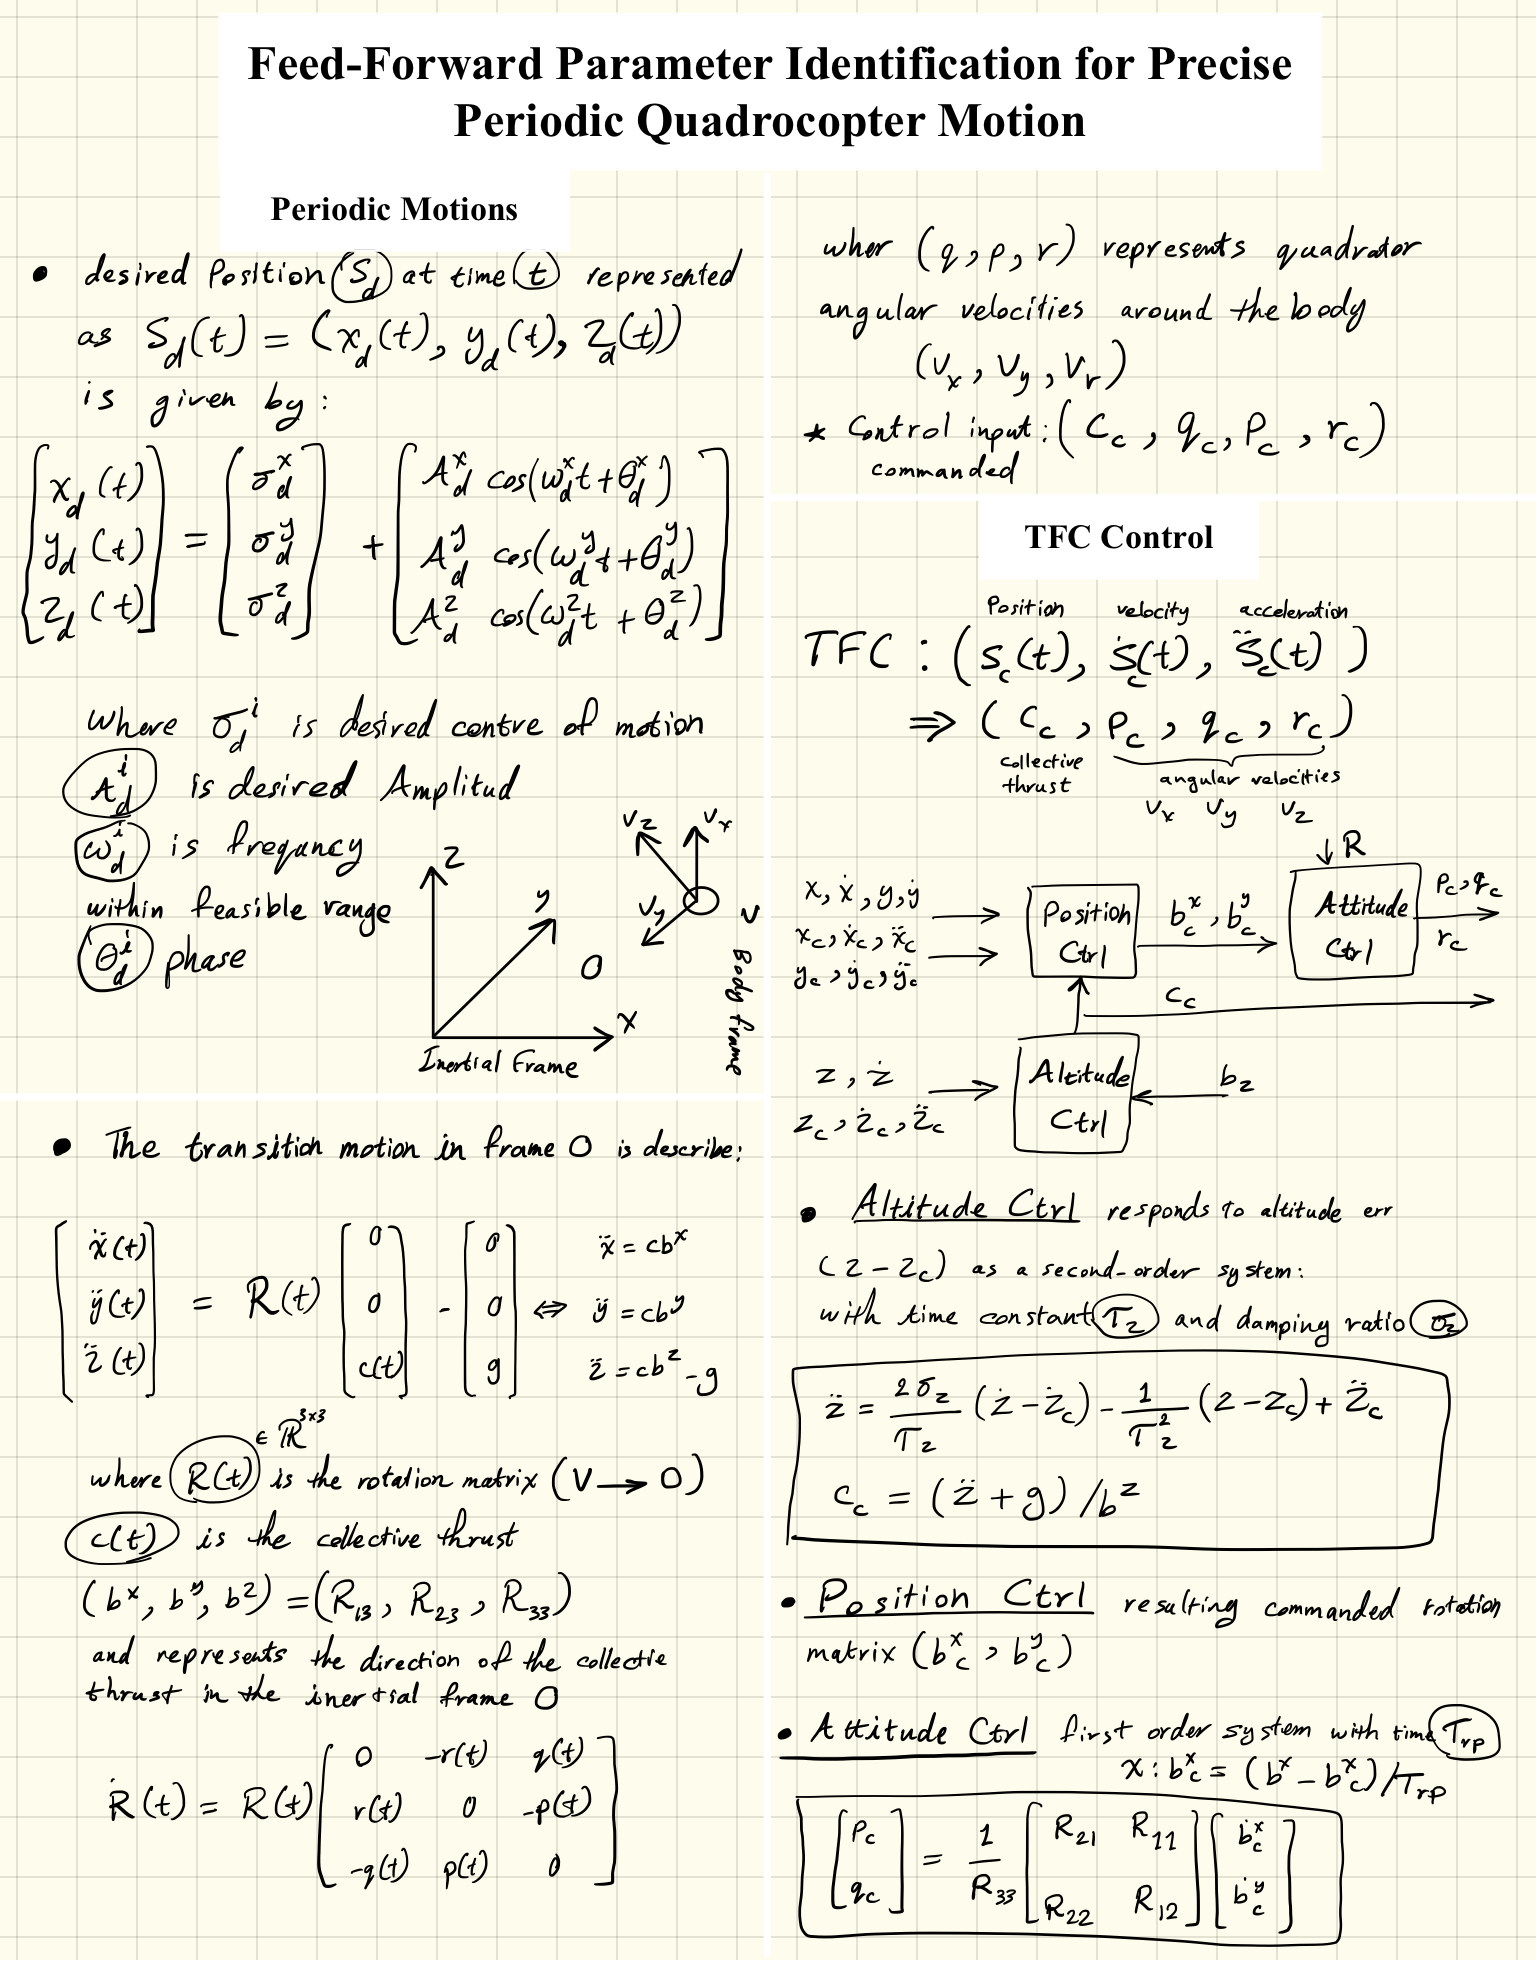 Feed-Forward Parameter Identification for Precise
Periodic Quadrocopter Motion
Periodic Motions
• desired Position (S_d) at time (t) represented
as S_d(t) = (x_d(t), y_d(t), z_d(t))
is given by:
[x_d(t)] = [σ_d^x] + [A_d^x cos(ω_d^x t + θ_d^x)]
[y_d(t)] = [σ_d^y] + [A_d^y cos(ω_d^y t + θ_d^y)]
[z_d(t)] = [σ_d^z] + [A_d^z cos(ω_d^z t + θ_d^z)]
where σ_d^i is desired centre of motion
A_d^i is desired Amplitud
ω_d^i is frequncy
within feasible range
θ_d^i phase
z
y
x
O
Inertial Frame
V_z V_x
V_y
V Body frame
• The transition motion in frame O is describe:
[ẍ(t)] = R(t) [0] - [0] ⇔ ẍ = cb^x
[ÿ(t)] [0] [0] ÿ = cb^y
[z̈(t)] [c(t)] [g] z̈ = cb^z - g
∈ ℝ^3x3
where R(t) is the rotation matrix (V → O)
c(t) is the collective thrust
(b^x, b^y, b^z) = (R_13, R_23, R_33)
and represents the direction of the collectie
thrust in the inertial frame O
Ṙ(t) = R(t) [0 -r(t) q(t)]
[r(t) 0 -p(t)]
[-q(t) p(t) 0]
wher (q, p, r) represents quadrator
angular velocities around the body
(V_x, V_y, V_r)
* Control input: (C_c, q_c, P_c, r_c)
commanded
TFC Control
Position velocity acceleration
TFC : (s_c(t), ṡ_c(t), s̈_c(t))
⇒ (c_c, p_c, q_c, r_c)
collective
thrust
angular velocities
V_x V_y V_z
↓ R
x, ẋ, y, ẏ
x_c, ẋ_c, ẍ_c
y_c, ẏ_c, ÿ_c
Position
Ctrl
b_c^x, b_c^y
Attitude
Ctrl
p_c, q_c
r_c
C_c
z, ż
z_c, ż_c, z̈_c
Altitude
Ctrl
b_z
• Altitude Ctrl responds to altitude err
(z - z_c) as a second-order system:
with time constant τ_z and damping ratio σ_z
z̈ = 2σ_z/τ_z (ż - ż_c) - 1/τ_z^2 (z - z_c) + z̈_c
c_c = (z̈ + g) / b^z
• Position Ctrl resulting commanded rotation
matrix (b_c^x, b_c^y)
• Attitude Ctrl first order system with time T_rp
x : b_c^x = (b^x - b_c^x)/T_rp
[p_c] = 1/R_33 [R_21 R_11] [ḃ_c^x]
[q_c] [R_22 R_12] [ḃ_c^y]